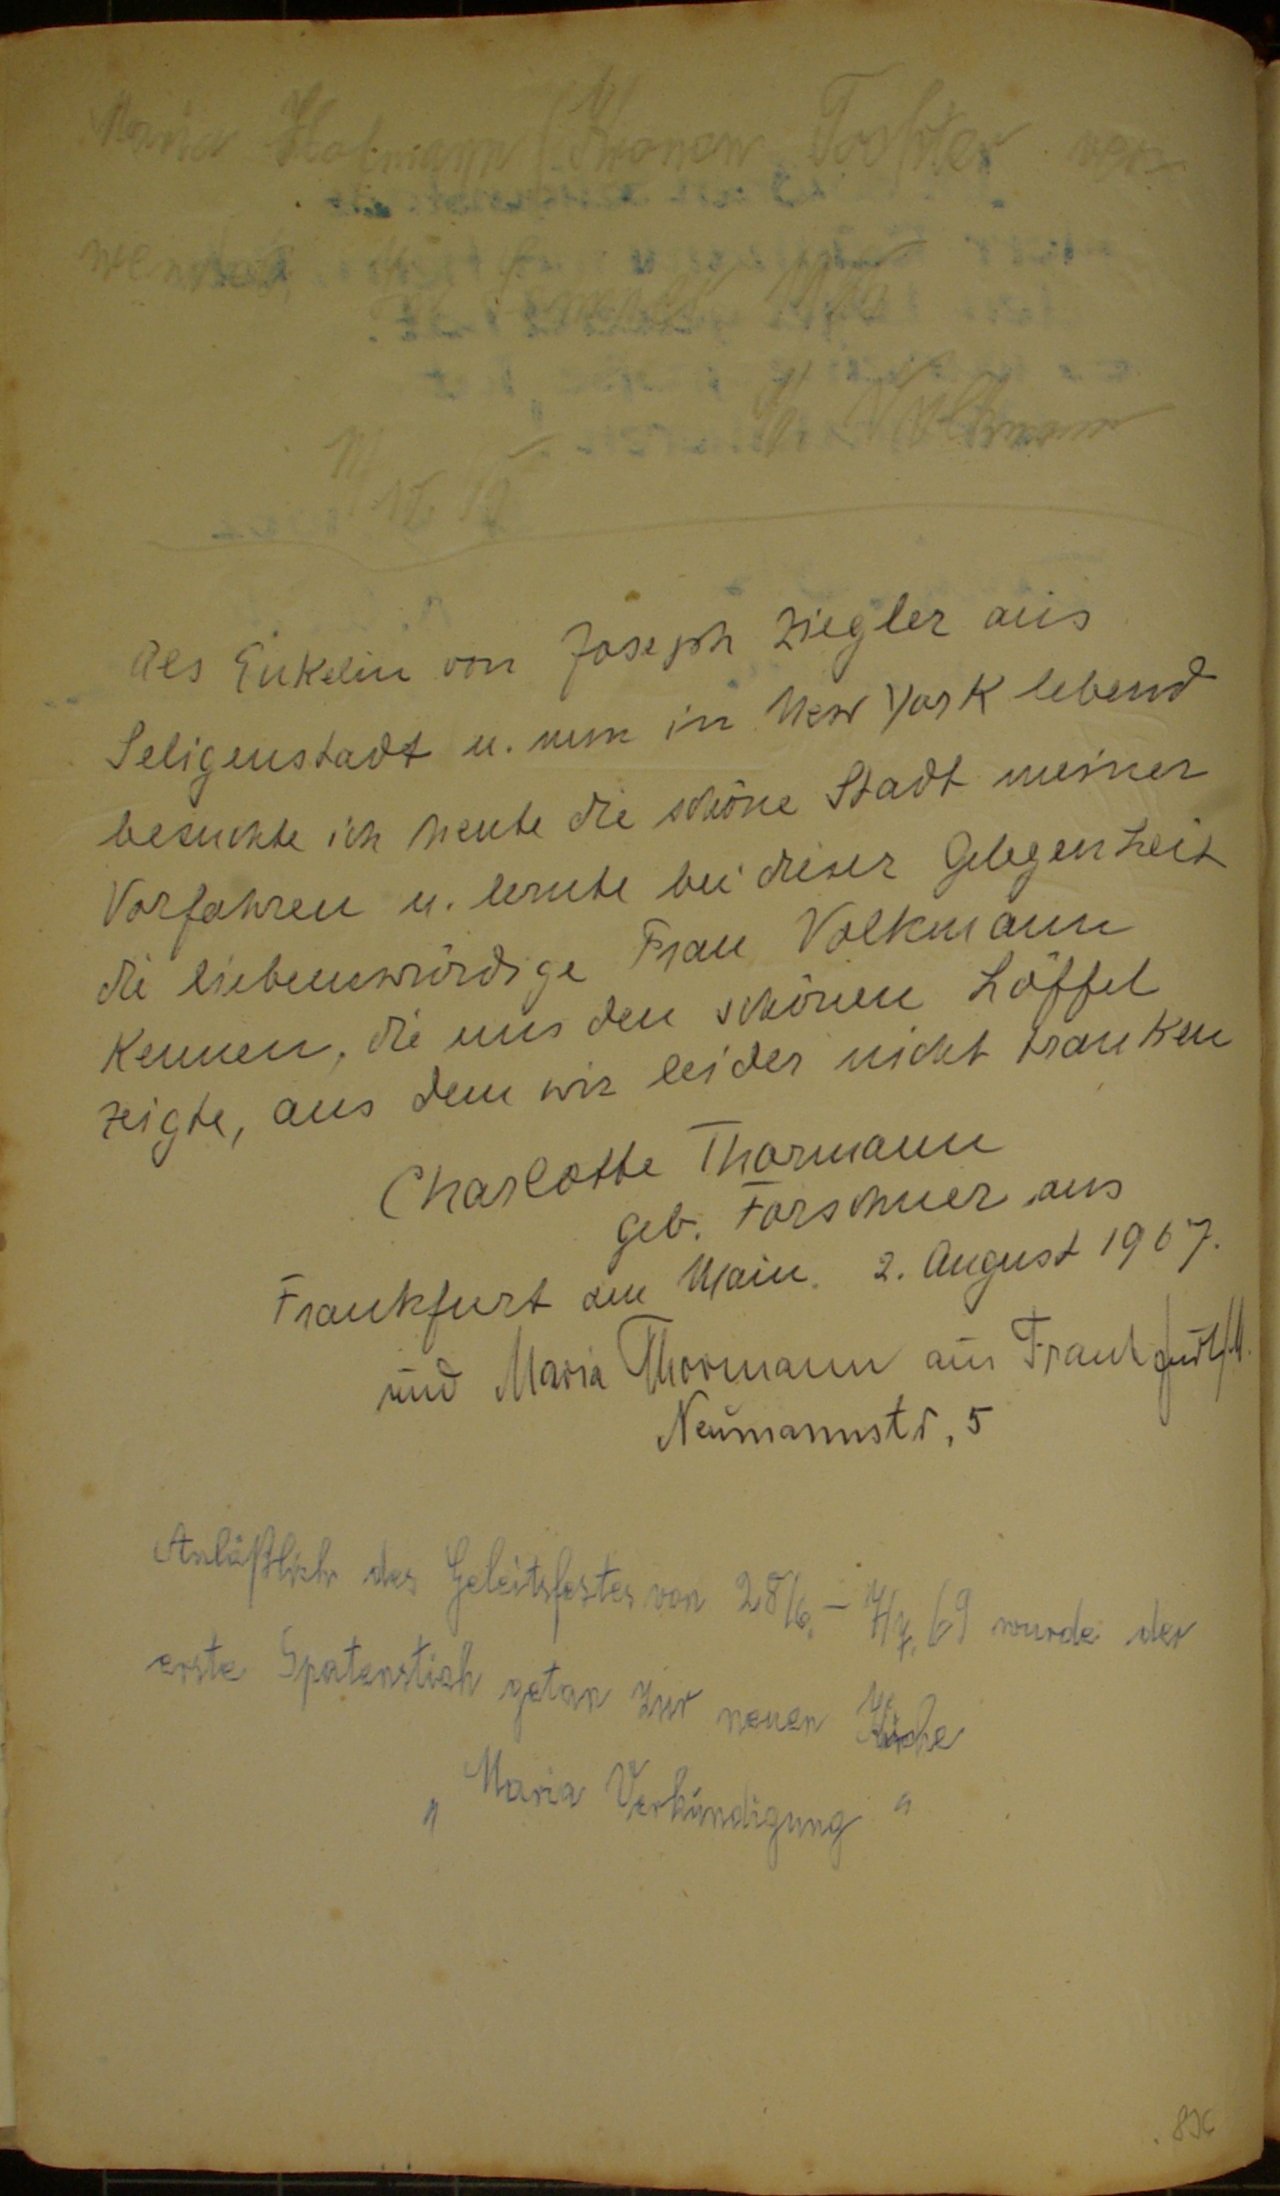 Maria Hofmann Kronen Tochter von
Volkmann
Als Enkelin von Joseph Ziegler aus
Seligenstadt u. nun in New York lebend
besuchte ich heute die schöne Stadt meiner
Vorfahren u. lernte bei dieser Gelegenheit
die liebenswürdige Frau Volkmann
kennen, die uns den schönen Löffel
zeigte, aus dem wir leider nicht tranken
Charlotte Thormann
geb. Forschner aus
Frankfurt am Main. 2. August 1967.
und Maria Thormann aus Frankfurt/M.
Neumannstr. 5
Anläßlich des Geleitsfestes von 28/6. – 7/7. 69 wurde der
erste Spatenstich getan zur neuen Kirche
„Maria Verkündigung"